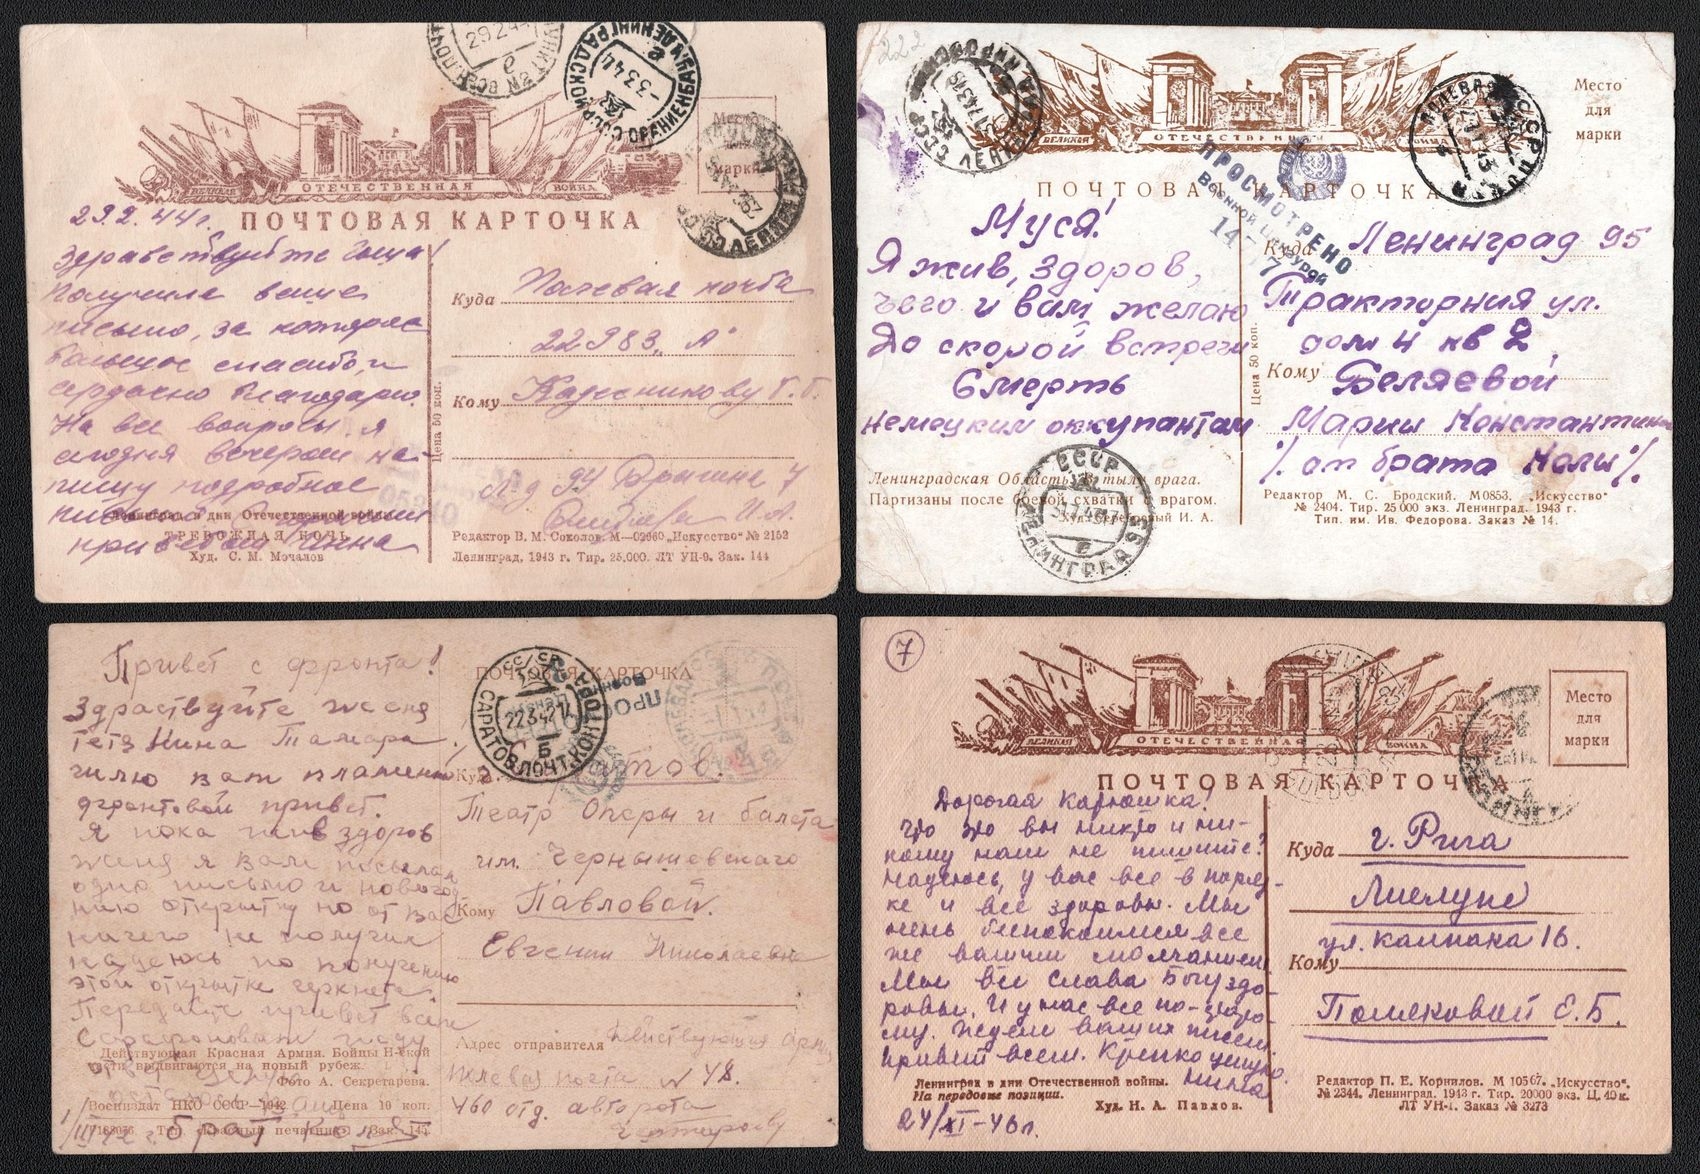 ВЕЛИКАЯ ОТЕЧЕСТВЕННАЯ ВОЙНА
Место
для
марки
29.2.44г.
ПОЧТОВАЯ КАРТОЧКА
Здравствуйте
Получила ваше
письмо, за которое
большое спасибо, и
сердечно благодарю.
На все вопросы я
сегодня вечером на-
пишу подробное
Куда Полевая почта
22983 "А"
Кому
Цена 50 коп.
Ленинград в дни Отечественной войны
ТРЕВОЖНАЯ НОЧЬ
Худ. С. М. Мочалов
Редактор В. М. Соколов. М—02960 „Искусство" № 2152
Ленинград, 1943 г. Тир. 25.000. ЛТ УЦ-9. Зак. 144
ВЕЛИКАЯ ОТЕЧЕСТВЕННАЯ ВОЙНА
Место
для
марки
222
ПОЧТОВАЯ КАРТОЧКА
ПРОСМОТРЕНО
Военной Цензурой
Муся!
Я жив, здоров,
чего и вам желаю
До скорой встречи
Смерть
немецким оккупантам
Куда Ленинград 95
Тракторная ул.
дом 4 кв 2
Кому Беляевой
Марии
от брата Коли
Цена 50 коп.
Ленинградская Область. В тылу врага.
Партизаны после боевой схватки с врагом.
Худ. Серебряный И. А.
Редактор М. С. Бродский. М0853. „Искусство"
№ 2404. Тир. 25000 экз. Ленинград. 1943 г.
Тип. им. Ив. Федорова. Заказ № 14.
Привет с фронта!
ПОЧТОВАЯ КАРТОЧКА
САРАТОВ ПОЧТ. КОНТОРА
Здраствуйте женя
тетя Нина Тамара
шлю вам пламений
фронтовой привет.
Я пока жив здоров
женя я вам посылал
одно письмо и новогод
нию открытку но от вас
ничего не получил
надеюсь по получению
этой открытке черкнете
Передайте привет всем
Куда
Театр Оперы и балета
им. Чернышевского
Кому Павловой.
Евгении Николаевне
Адрес отправителя Действующия Армия
полевая почта № 48.
460 отд. авторота
Действующая Красная Армия. Бойцы Н-ской
части выдвигаются на новый рубеж.
Фото А. Секретарева.
Воениздат НКО СССР—1942 Цена 10 коп.
7
ВЕЛИКАЯ ОТЕЧЕСТВЕННАЯ ВОЙНА
Место
для
марки
ПОЧТОВАЯ КАРТОЧКА
Дорогая
Что это вы никто и ни-
кому нам не пишите?
Надеюсь, у вас все в поряд-
ке и все здоровы. Мы
очень беспокоимся все
же вашим молчанием
Мы все слава Богу здо-
ровы. И у нас все по-старо-
му. Ждем ваших писем
Привет всем. Крепко целую.
Нина
24/XI-46г.
Куда г. Рига
Лиелупе
16.
Кому
Поляковой Е.Б.
Ленинград в дни Отечественной войны.
На передовые позиции.
Худ. Н. А. Павлов.
Редактор П. Е. Корнилов. М 10567. „Искусство".
№ 2344. Ленинград. 1943 г. Тир. 20000 экз. Ц. 40 к.
ЛТ УН-1. Заказ № 3273